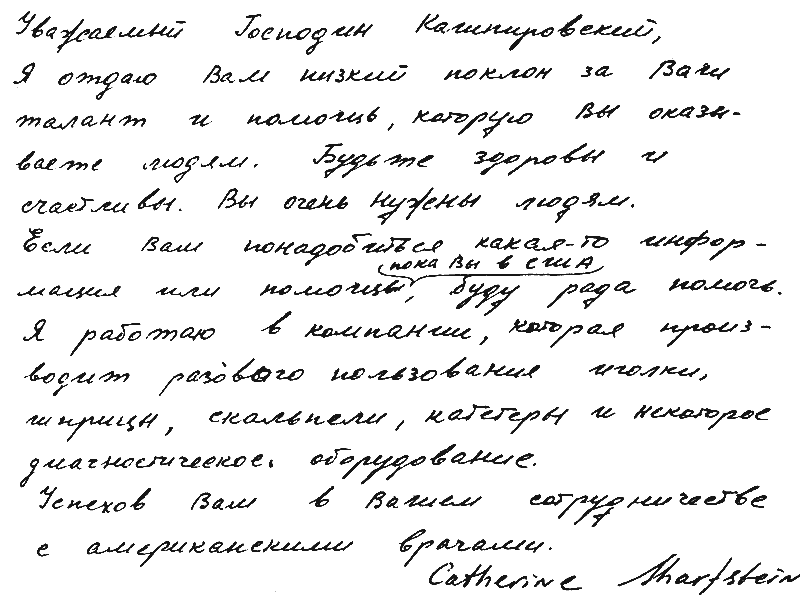 Уважаемый Господин Кашпировский,
Я отдаю Вам низкий поклон за Ваш
талант и помощь, которую Вы оказы-
ваете людям. Будьте здоровы и
счастливы. Вы очень нужны людям.
Если Вам понадобиться какая-то инфор-
пока Вы в США
мация или помощь, буду рада помочь.
Я работаю в компании, которая произ-
водит разового пользования иголки,
шприцы, скальпели, катетеры и некоторое
диагностическое оборудование.
Успехов Вам в Вашем сотрудничестве
с американскими врачами.
Catherine Sharfstein